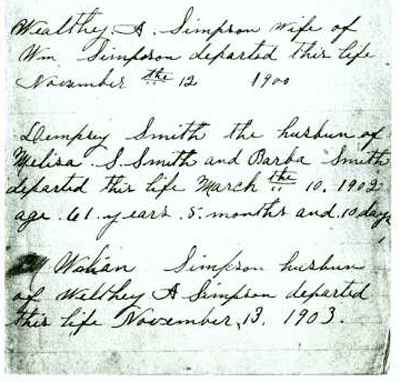 Wealthey A. Simpson wife of
Wm Simposon departed this life
November the 12 1900
Dempsey Smith the husbun of
Melisa. S. Smith and Barba Smith
departed this life March the 10. 1902
age. 61. years. 5. months and. 10 days
Wilian Simpson husbun
of Walthey A Simpson departed
this life November, 13. 1903.